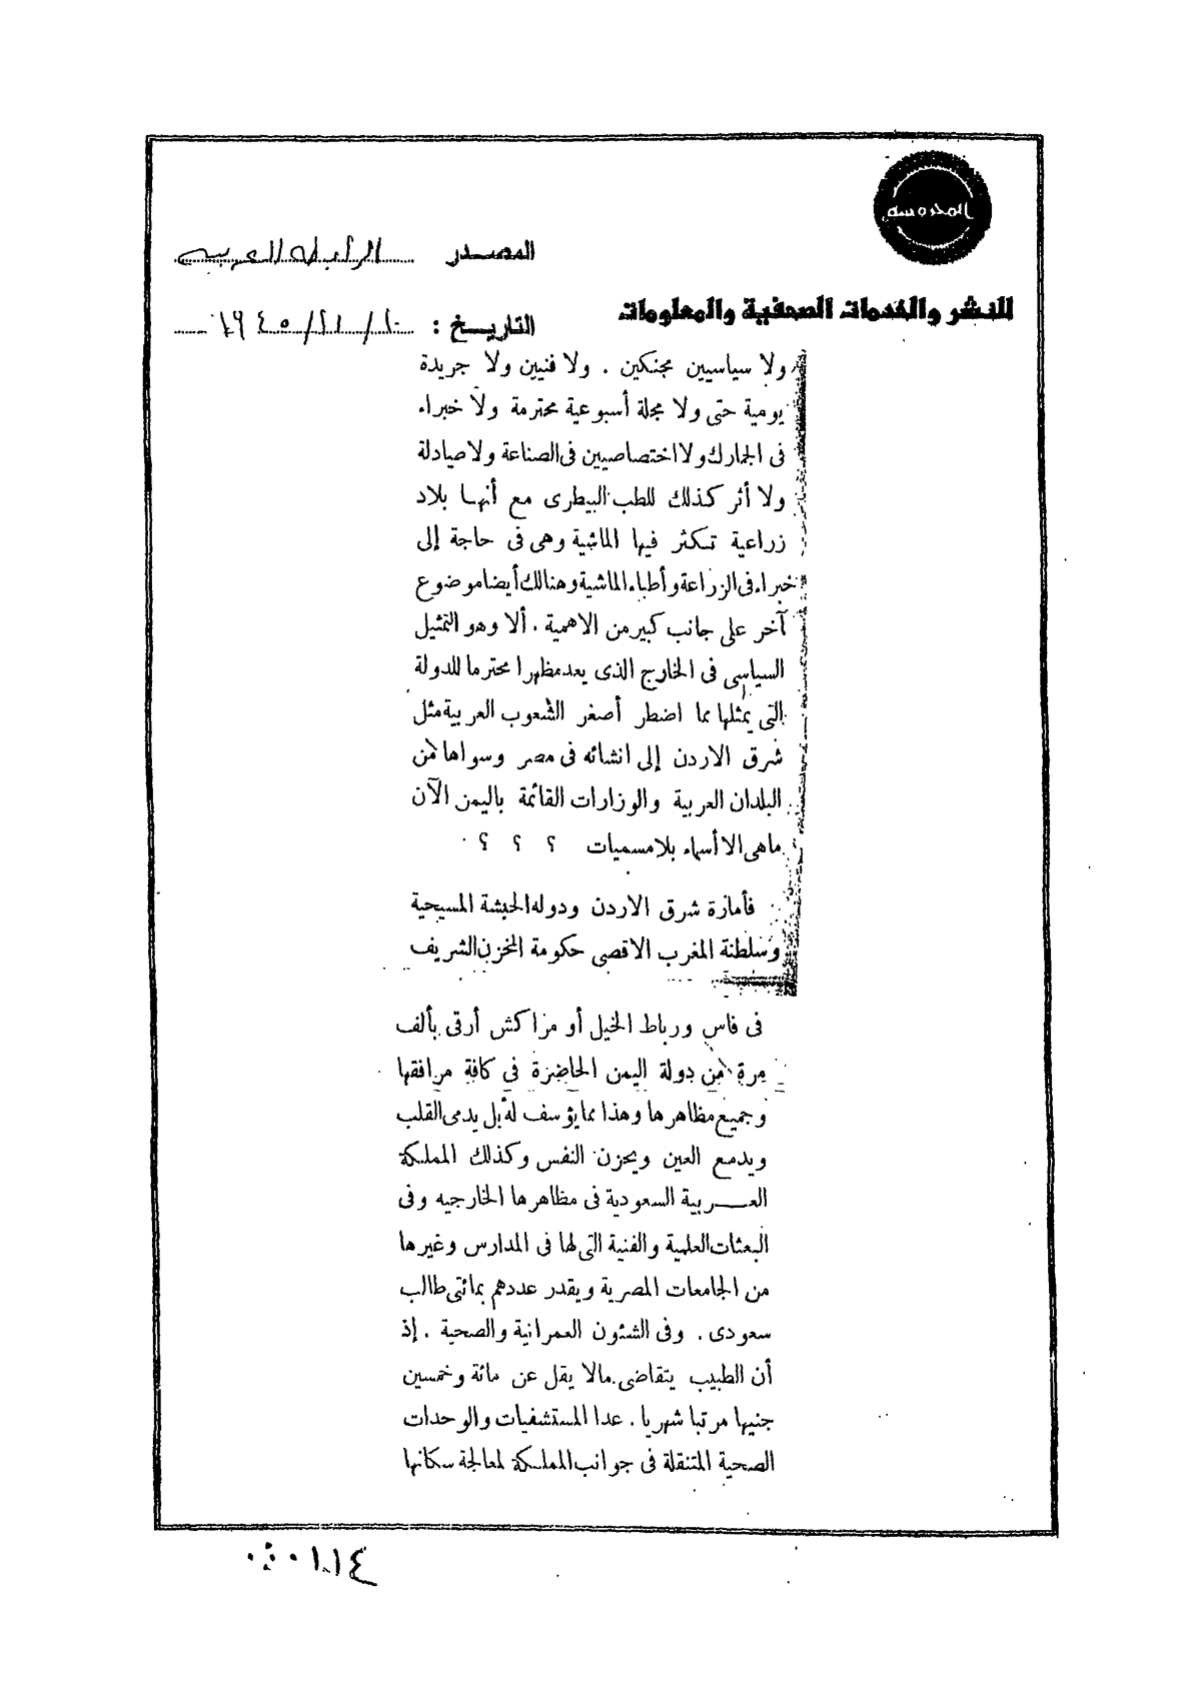 المحروسه
المصدر الرابطه العربيه
للنشر والخدمات الصحفية والمعلومات
التاريخ :
ولا سياسيين محنكين . ولا فنيين ولا جريدة
يومية حتى ولا مجلة أسبوعية محترمة ولا خبراء
فى الجمارك ولا اختصاصيين فى الصناعة ولا صيادلة
ولا أثر كذلك للطب البيطرى مع أنها بلاد
زراعية تكثر فيها الماشية وهى فى حاجة إلى
خبراء فى الزراعة وأطباء الماشية وهنالك أيضا موضوع
آخر على جانب كبير من الاهمية . ألا وهو التمثيل
السياسى فى الخارج الذى يعد مظهرا محترما للدولة
التى يمثلها مما اضطر أصغر الشعوب العربية مثل
شرق الاردن إلى انشائه فى مصر وسواها من
البلدان العربية والوزارات القائمة باليمن الآن
ماهى الا أسماء بلا مسميات ؟ ؟ ؟
فأمارة شرق الاردن ودوله الحبشة المسيحية
وسلطنة المغرب الاقصى حكومة المخزن الشريف
فى فاس ورباط الخيل أو مراكش أرقى بألف
مرة من دولة اليمن الحاضرة فى كافة مرافقها
وجميع مظاهرها وهذا مما يؤسف له بل يدمى القلب
ويدمع العين ويحزن النفس وكذلك المملكة
العربية السعودية فى مظاهرها الخارجيه وفى
البعثات العلمية والفنية التى لها فى المدارس وغيرها
من الجامعات المصرية ويقدر عددهم بمائتى طالب
سعودى . وفى الشئون العمرانية والصحية . إذ
أن الطبيب يتقاضى مالا يقل عن مائة وخمسين
جنيها مرتبا شهريا . عدا المستشفيات والوحدات
الصحية المتنقلة فى جوانب المملكة لمعالجة سكانها